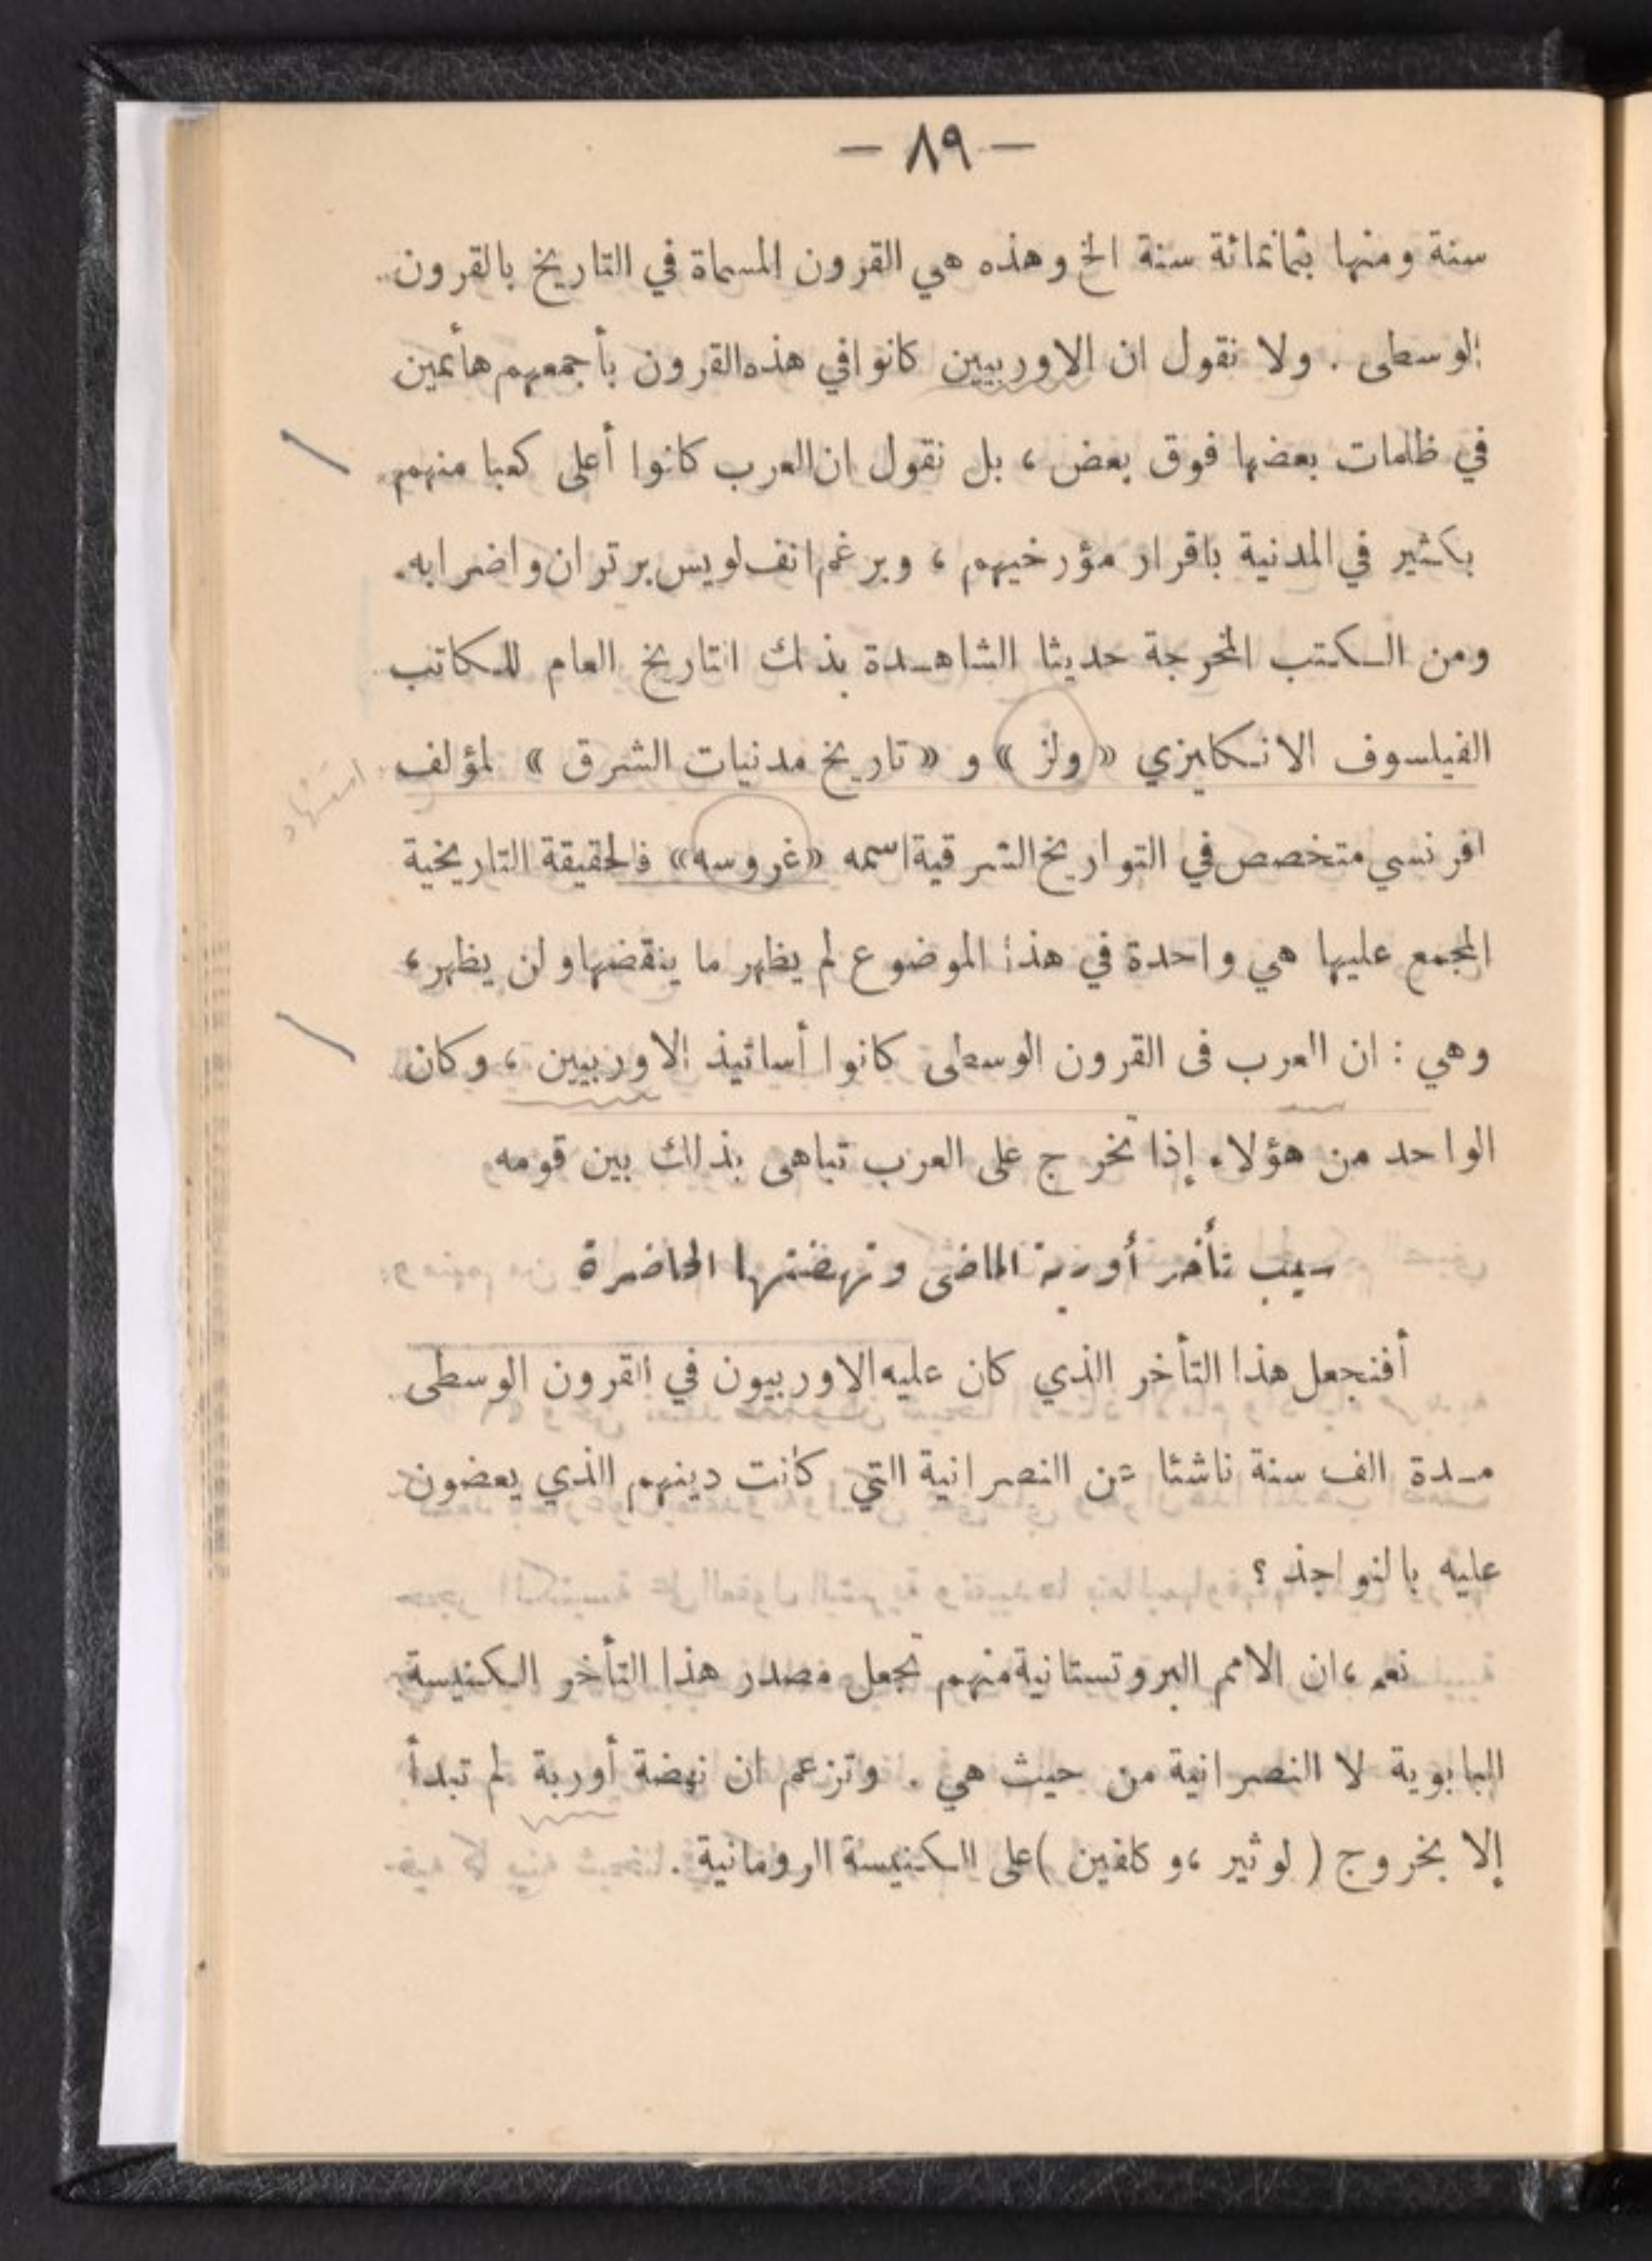 — ٨٩ —
سنة ومنها بثمانمائة سنة الخ وهذه هي القرون المسماة في التاريخ بالقرون
الوسطى . ولا نقول ان الاوربيين كانوا في هذه القرون بأجمعهم هائمين
في ظلمات بعضها فوق بعض ، بل نقول ان العرب كانوا أعلى كعبا منهم
بكثير في المدنية باقرار مؤرخيهم ، وبرغم انف لويس برتران واضرابه.
ومن الكتب المخرجة حديثا الشاهدة بذلك التاريخ العام للكاتب
الفيلسوف الانكليزي « ولز » و « تاريخ مدنيات الشرق » لمؤلف
استشهاد
افرنسي متخصص في التواريخ الشرقية اسمه « غروسه » فالحقيقة التاريخية
المجمع عليها هي واحدة في هذا الموضوع لم يظهر ما ينقضها ولن يظهر ،
وهي : ان العرب فى القرون الوسطى كانوا أساتيذ الاوربيين ، وكان
الواحد من هؤلاء إذا تخرج على العرب تباهى بذلك بين قومه
سبب تأخر أوربة الماضى ونهضتها الحاضرة
أفنجعل هذا التأخر الذي كان عليه الاوربيون في القرون الوسطى
مدة الف سنة ناشئا عن النصرانية التي كانت دينهم الذي يعضون
عليه بالنواجذ ؟
نعم ، ان الامم البروتستانية منهم تجعل مصدر هذا التأخر الكنيسة
البابوية لا النصرانية من حيث هي . وتزعم ان نهضة أوربة لم تبدأ
إلا بخروج ( لوثير ، وكلفين ) على الكنيسة الرومانية .